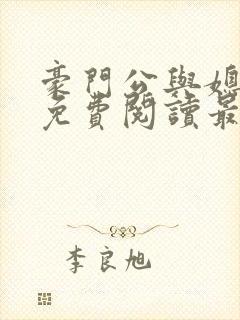 豪門公與媳
免費閱讀最
李良旭